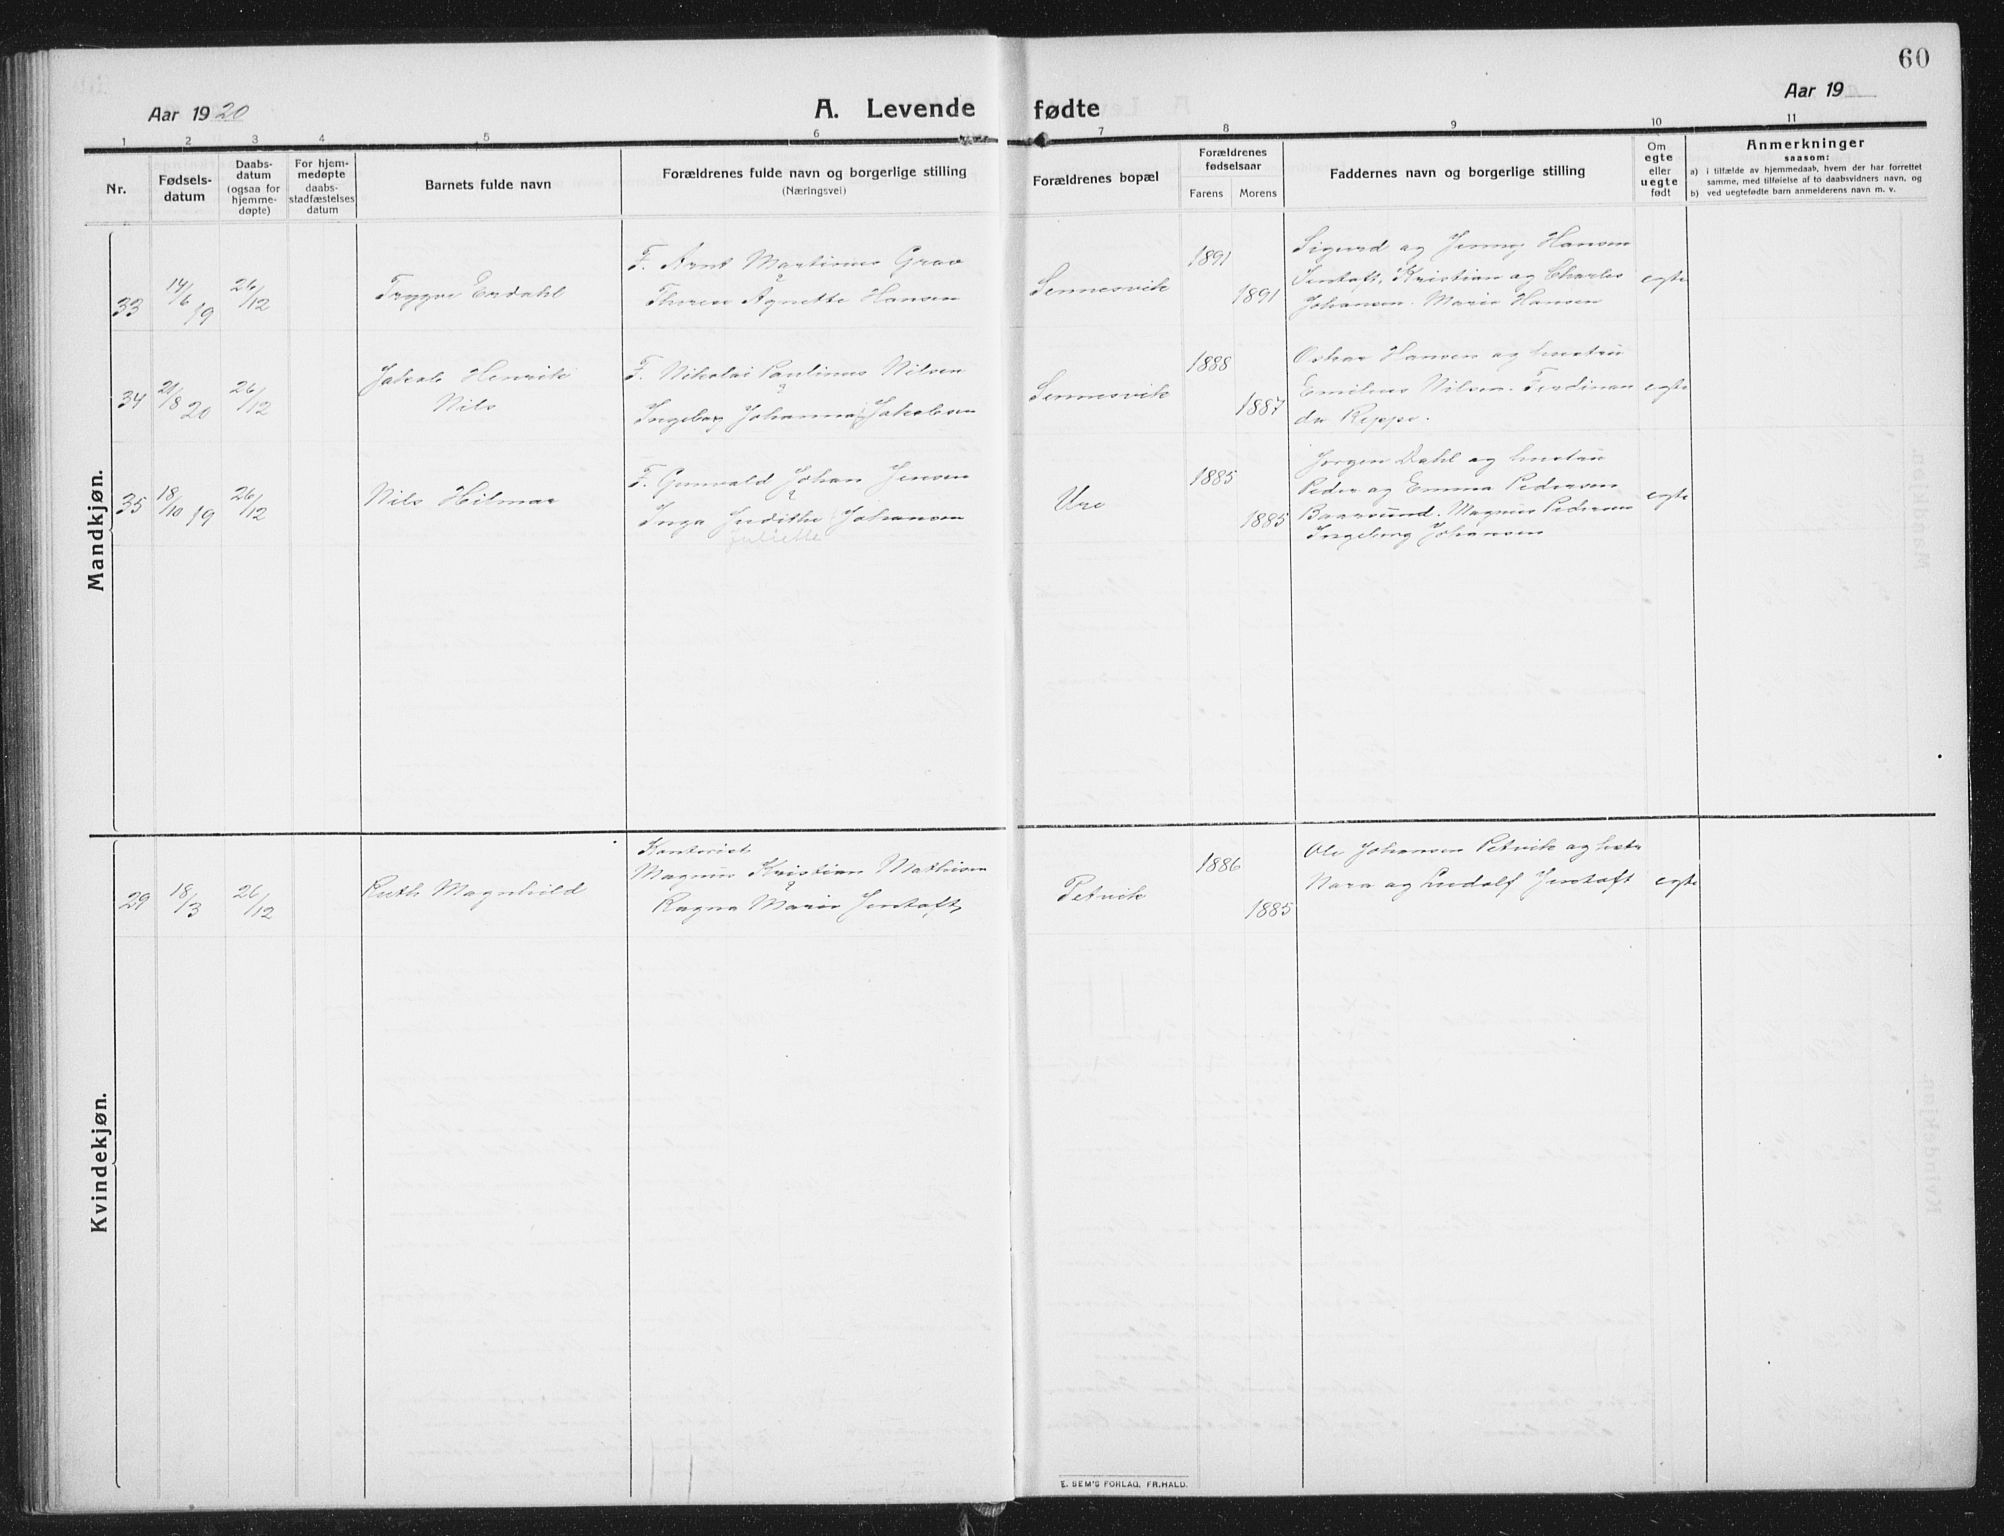 60
Aar 1920
A. Levende fødte
Aar 19
1 2 3 4 5 6 7 8 9 10 11
Nr.
Fødsels-
datum
Daabs-
datum
(ogsaa for
hjemme-
døpte)
For hjem-
medøpte
daabs-
stadfæstelses
datum
Barnets fulde navn
Forældrenes fulde navn og borgerlige stilling
(Næringsvei)
Forældrenes bopæl
Forældrenes
fødselsaar
Farens Morens
Faddernes navn og borgerlige stilling
Om
egte
eller
uegte
født
Anmerkninger
saasom:
a) i tilfælde av hjemmedaab, hvem der har forrettet
samme, med tilføielse af to daabsvidners navn, og
b) ved uegtefødte barn anmelderens navn m. v.
Mandkjøn.
33 14/6 19 26/12
Trygve Erdahl
F. Arnt Martinus Grav
Therese Agnette Hansen
Sennesvik
1891
1891
Sigurd og Jenny Hansen
Jentoft, Kristian og Charles
Johansen. Marie Hansen
egte
34 21/8 20 26/12
Jakob Henrik
Nils
F. Nikolai Paulinus Nilsen
Ingeborg Johanna Jakobsen
Sennesvik
1888
1887
Oskar Hansen og hustru
Emilius Nilsen. Ferdinan
da Rippe.
egte
35 18/10 19 26/12
Nils Hilmar
F. Gunvald Johan Jensen
Inga Judithe Johansen
Juliette
Ure
1885
1885
Jørgen Dahl og hustru
Peder og Emma Pedersen
Magnus Pedersen
Ingeborg Johansen
egte
Kvindekjøn.
29 18/3 26/12
Ruth Magnhild
Kontorist
Magnus Kristian Mathisen
Ragna Marie Jentoft
Petvik
1886
1885
Ole Johansen Petvik og hstr
Nara og Ludolf Jentoft
egte
E. SEM'S FORLAG, FR.HALD.